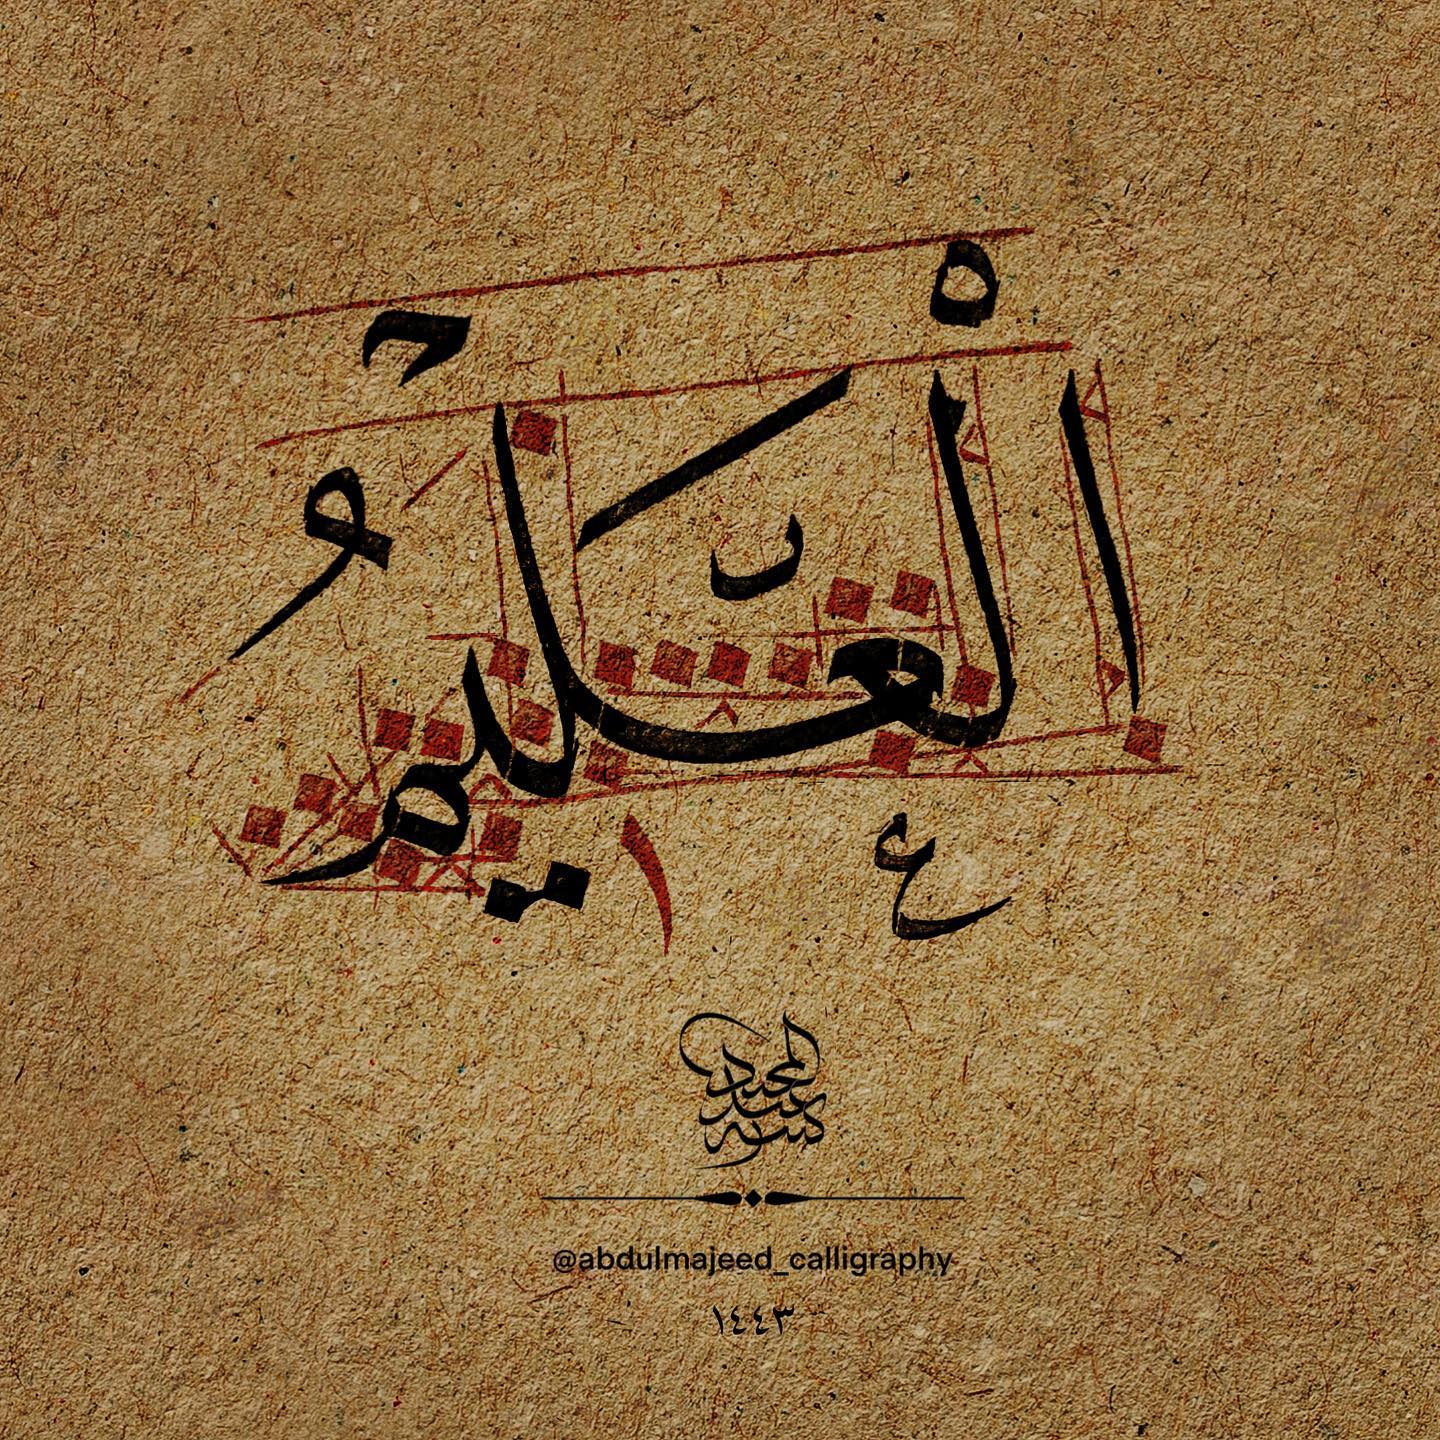 الْعَلِيمُ
كتبه عبد المجيد
@abdulmajeed_calligraphy
١٤٤٣